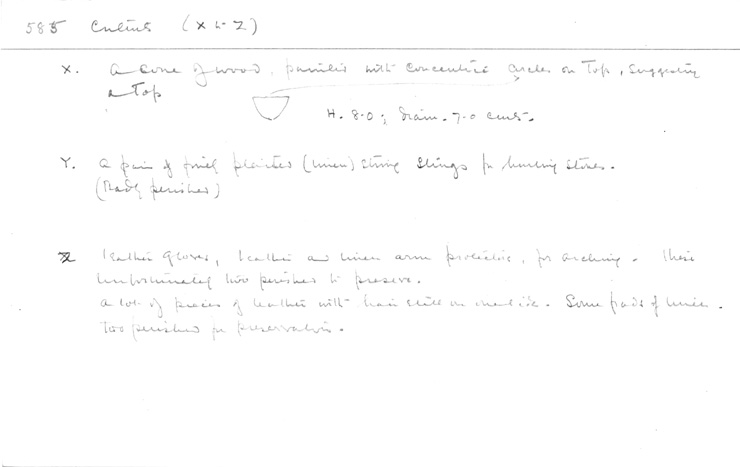 585 Contents (X to Z)
X. A cone of wood, painted with concentric circles on Top, suggesting
a Top
H. 8.0; Diam. 7.0 cms.
Y. A pair of finely plaited (linen) string slings for hurling stones.
(Badly perished)
Z Leather gloves, leather and linen arm protectors, for archery. These
unfortunately too perished to preserve.
A lot of pieces of leather with hair still on one side. Some pads of linen.
Too perished for preservation.